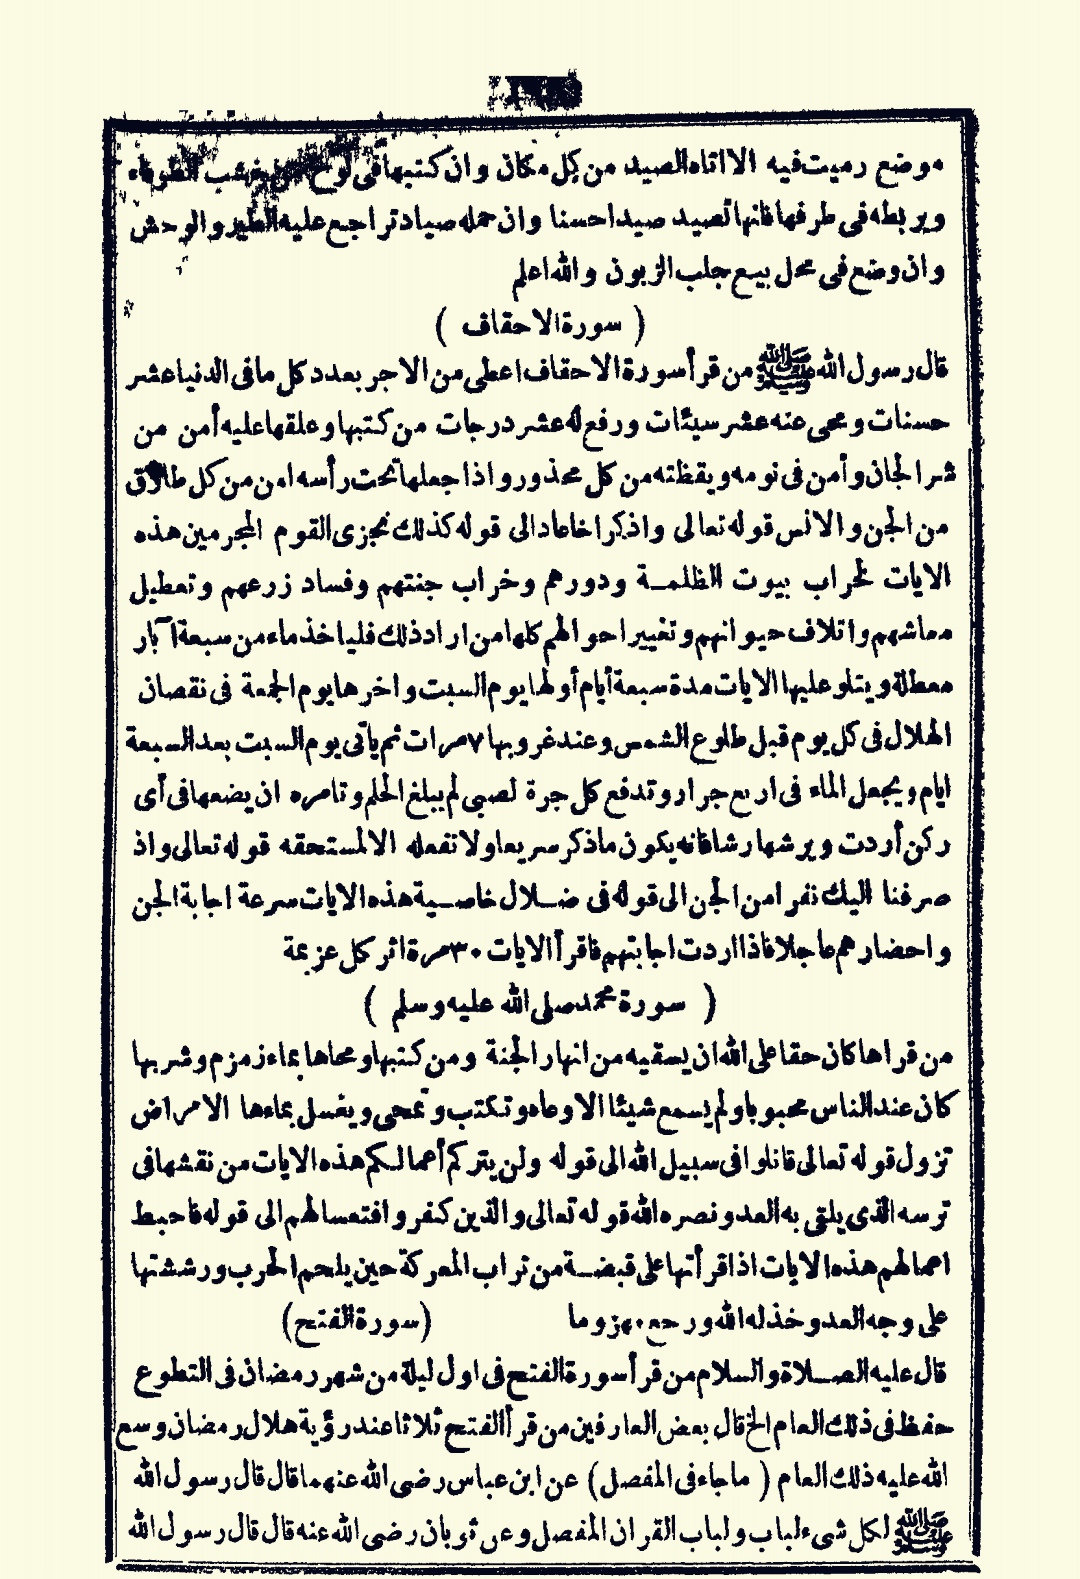 موضع رميت فيه الا اتاه الصيد من كل مكان وان كتبها فى لوح من خشب الطرفاء
ويربطه فى طرفها فانها تصيد صيدا حسنا وان حمله صياد تراجع عليه الطير والوحش
وان وضع فى محل بيع جلب الزبون والله اعلم
( سورة الاحقاف )
قال رسول الله ﷺ من قرأ سورة الاحقاف اعطى من الاجر بعدد كل ما فى الدنيا عشر
حسنات ومحى عنه عشر سيئات ورفع له عشر درجات من كتبها وعلقها عليه أمن من
شر الجان وأمن فى نومه ويقظته من كل محذور واذا جعلها تحت رأسه امن من كل طارق
من الجن والانس قوله تعالى واذكر اخا عاد الى قوله كذلك نجزى القوم المجرمين هذه
الايات لخراب بيوت الظلمة ودورهم وخراب جنتهم وفساد زرعهم وتعطيل
معاشهم واتلاف حيوانهم وتغيير احوالهم كلها من اراد ذلك فليأخذ ماء من سبعة آبار
معطلة ويتلو عليها الايات مدة سبعة أيام أولها يوم السبت واخرها يوم الجمعة فى نقصان
الهلال فى كل يوم قبل طلوع الشمس وعند غروبها ٧ مرات ثم يأتى يوم السبت بعد السبعة
ايام ويجعل الماء فى اربع جرار وتدفع كل جرة لصبى لم يبلغ الحلم وتامره ان يضعها فى أى
ركن أردت ويرشها رشا فانه يكون ما ذكر سريعا ولا تفعله الا لمستحقه قوله تعالى واذ
صرفنا اليك نفرا من الجن الى قوله فى ضلال خاصية هذه الايات سرعة اجابة الجن
واحضارهم عاجلا فاذا اردت اجابتهم فاقرأ الايات ٣٠ مرة اثر كل عزيمة
( سورة محمد صلى الله عليه وسلم )
من قراها كان حقا على الله ان يسقيه من انهار الجنة ومن كتبها ومحاها بماء زمزم وشربها
كان عند الناس محبوبا ولم يسمع شيئا الا وعاه وتكتب وتمحى ويغسل بماءها الامراض
تزول قوله تعالى قاتلوا فى سبيل الله الى قوله ولن يتركم أعمالكم هذه الايات من نقشها فى
ترسه الذى يلقى به العدو نصره الله قوله تعالى والذين كفروا فتعسا لهم الى قوله فاحبط
اعمالهم هذه الايات اذا قرأتها على قبضة من تراب المعركة حين يلحم الحرب ورششتها
على وجه العدو خذله الله ورجع مهزوما (سورة الفتح)
قال عليه الصلاة والسلام من قرأ سورة الفتح فى اول ليلة من شهر رمضان فى التطوع
حفظ فى ذلك العام الخ قال بعض العارفين من قرأ الفتح ثلاثا عند رؤية هلال رمضان وسع
الله عليه ذلك العام ( ما جاء فى المفصل) عن ابن عباس رضى الله عنهما قال قال رسول الله
ﷺ لكل شىء لباب ولباب القران المفصل وعن ثوبان رضى الله عنه قال قال رسول الله